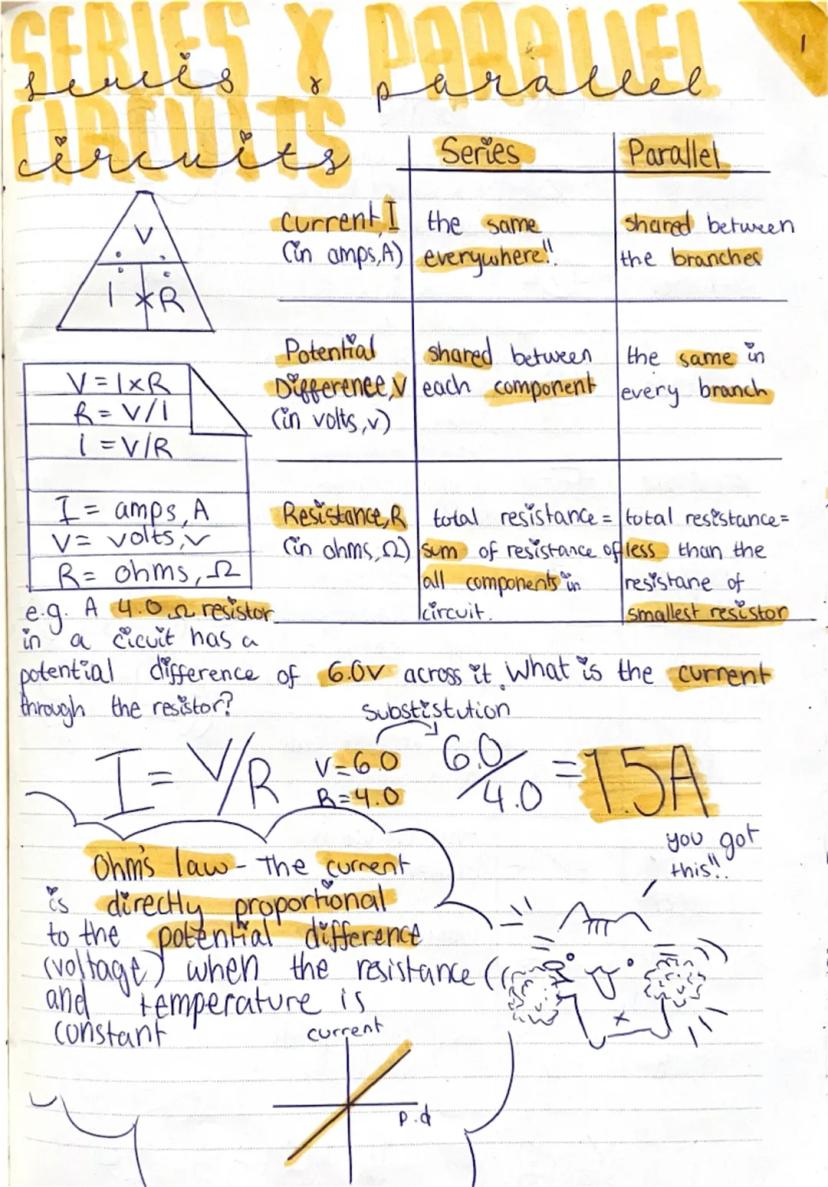 SERIES & PARALLEL
series & parallel
1
CIRCUITS
circuits
Series
Parallel
V
I × R
V = I×R
R = V/I
I = V/R
I = amps, A
V = volts, v
R = ohms, Ω
current, I
(in amps, A)
the same
everywhere!!
shared between
the branches
Potential
Difference, V
(in volts, v)
shared between
each component
the same in
every branch
Resistance, R
(in ohms, Ω)
total resistance =
sum of resistance of
all components in
circuit.
total resistance =
less than the
resistane of
smallest resistor
e.g. A 4.0 Ω resistor
in a cicuit has a
potential difference of 6.0V across it. What is the current
through the resistor?
substistution
I = V/R
V = 6.0
R = 4.0
6.0/4.0 = 1.5A
you got
this!!
Ohm's law - The current
is directly proportional
to the potential difference
(voltage) when the resistance
and temperature is
constant
current
p.d